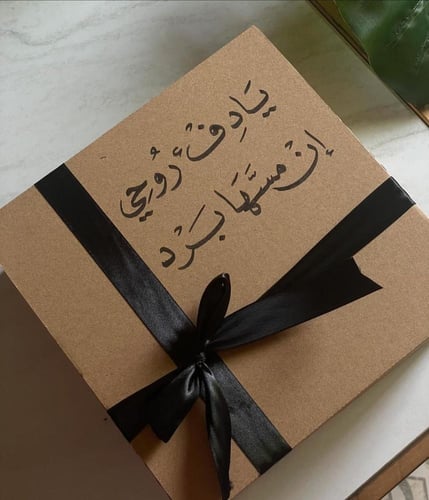 يَا دِفْ رُوُحِي
إنْ مسَّهَا بَرْد